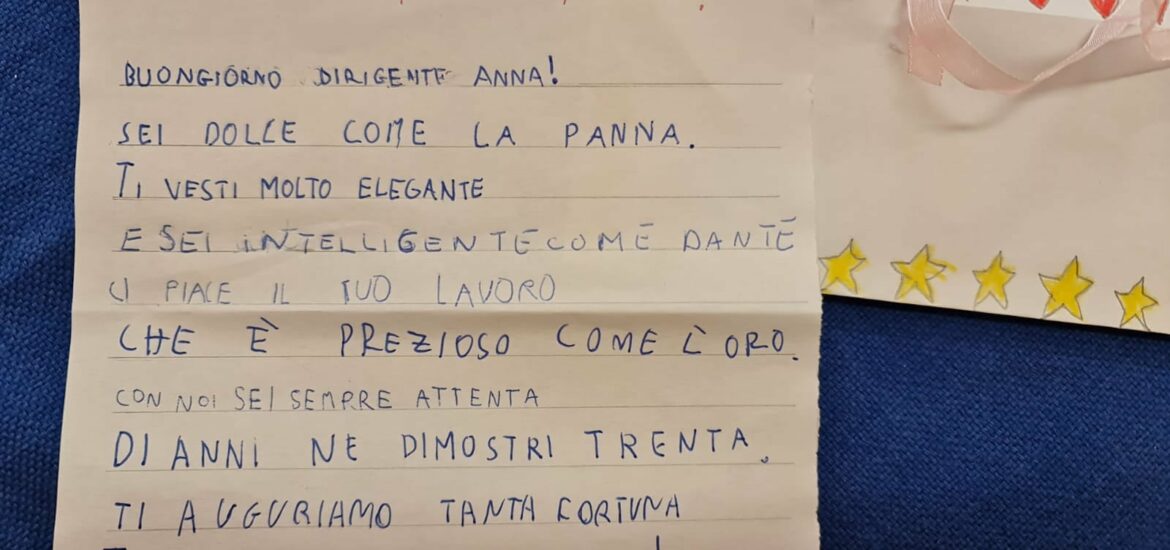 BUONGIORNO DIRIGENTE ANNA!
SEI DOLCE COME LA PANNA.
TI VESTI MOLTO ELEGANTE
E SEI INTELLIGENTE COME DANTE
CI PIACE IL TUO LAVORO
CHE È PREZIOSO COME L'ORO.
CON NOI SEI SEMPRE ATTENTA
DI ANNI NE DIMOSTRI TRENTA.
TI AUGURIAMO TANTA FORTUNA